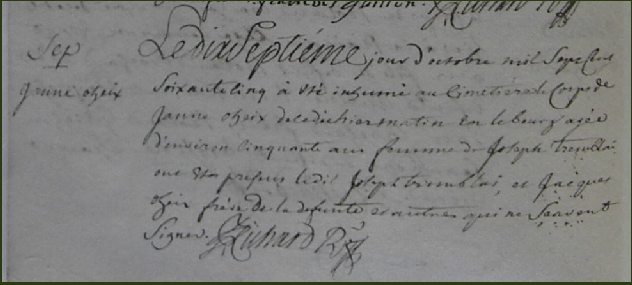 Sep
Jeanne oheix
Le dix Septiéme jour d'octobre mil Sept Cent
Soixante Cinq à été inhumé au Cimetiére le Corps de
Janne oheix decedée hier matin en le bourg agée
d'environ Cinquante ans femme de Joseph tremblai
ont été presens ledit Joseph tremblai, et Jacques
oheix frere de la defunte et autres qui ne Scavent
Signer. Richard